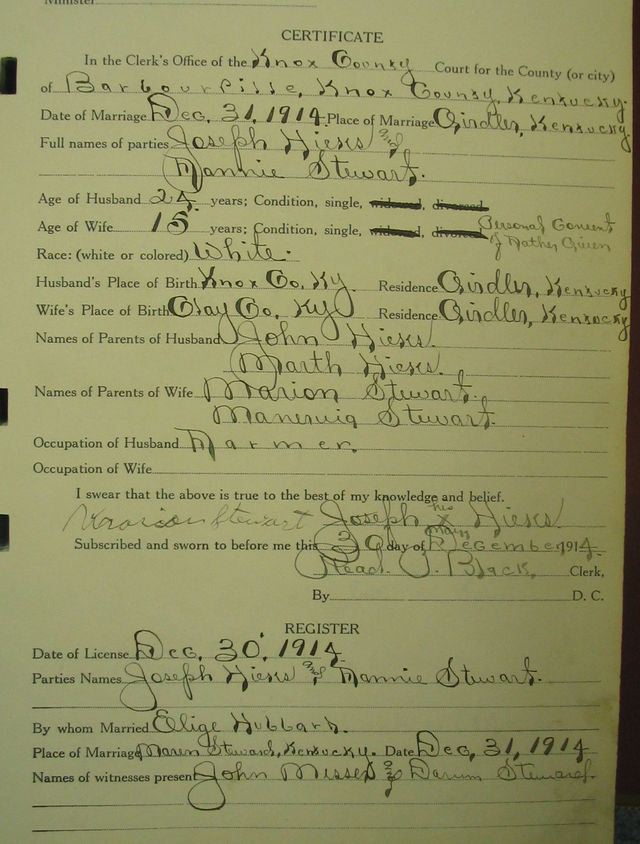 Minister
CERTIFICATE
In the Clerk's Office of the Knox County Court for the County (or city)
of Barbourville, Knox County, Kentucky.
Date of Marriage Dec, 31, 1914 Place of Marriage Girdler, Kentucky.
Full names of parties Joseph Hicks and
Nannie Stewart.
Age of Husband 24 years; Condition, single, widowed, divorced
Age of Wife 15 years; Condition, single, widowed, divorced Personal Consent
of Father Given
Race: (white or colored) White.
Husband's Place of Birth Knox Co, Ky. Residence Girdler, Kentucky
Wife's Place of Birth Clay Co, Ky Residence Girdler, Kentucky
Names of Parents of Husband John Hicks.
Marth Hicks.
Names of Parents of Wife Marion Stewart.
Stewart.
Occupation of Husband Farmer.
Occupation of Wife
I swear that the above is true to the best of my knowledge and belief.
Stewart Joseph his x mark Hicks.
Subscribed and sworn to before me this 30 day of December 1914.
Read. Black, Clerk,
By D. C.
REGISTER
Date of License Dec, 30, 1914
Parties Names Joseph Hicks and Nannie Stewart.
By whom Married Elige Hubbard.
Place of Marriage Kentucky. Date Dec, 31, 1914
Names of witnesses present John &